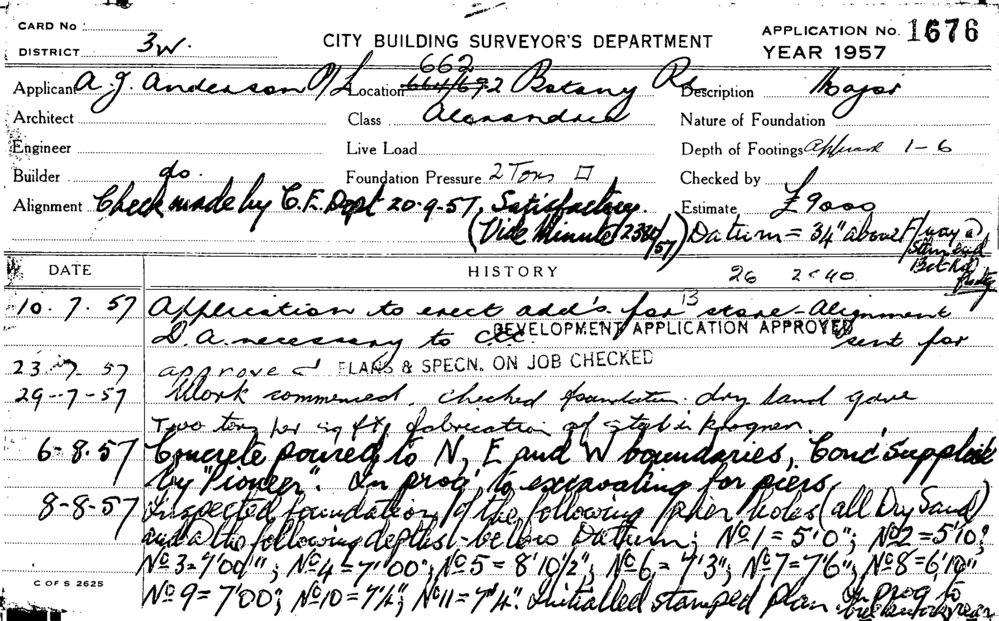 CARD No
DISTRICT 3W.
CITY BUILDING SURVEYOR'S DEPARTMENT
APPLICATION No. 1676
YEAR 1957
662
Applicant A. J. Anderson P/L Location 664/692 Botany Rd Description Major
Architect Class Alexandria Nature of Foundation
Engineer Live Load Depth of Footings Approved 1-6
Builder do. Foundation Pressure 2 Tons □ Checked by
Alignment Check made by C.E. Dept 20-9-57, Satisfactory. Estimate £9000
(Vide Minute 2380/57) Datum = 3/4" above F/way at
Stan
Bot Rd
DATE HISTORY 26 2<40
10.7.57 Application to erect add's. for store - Alignment
13
D.A. necessary to CC. DEVELOPMENT APPLICATION APPROVED sent for
23-7-57 approved PLANS & SPECN. ON JOB CHECKED
29-7-57 Work commenced. checked foundation dry sand gave
Two tons per sq ft, fabrication of steel in progress.
6-8-57 Concrete poured to N, E and W boundaries, Conc' supplied
by "Pioneer". In prog' to excavating for piers
8-8-57 Inspected foundation of the following pier holes (all Dry Sand)
and at the following depths below Datum: No 1 = 5'0"; No 2 = 5'10;
No 3 = 7'00"; No 4 = 7'00"; No 5 = 8'10½"; No 6 = 7'3"; No 7 = 7'6"; No 8 = 6'10"
No 9 = 7'00; No 10 = 7'4"; No 11 = 7'4". Initialled stamped plan. In prog to
C OF S 2625